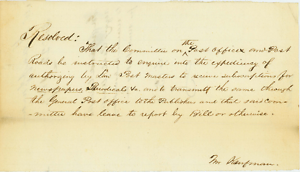 Resolved:
That the Committee on the Post offices and Post
Roads be instructed to enquire into the expediency of
authorizing by law Post Masters to receive subscriptions for
Newspapers, Periodicals &c. and to transmit the same through
the General Post office to the Publishers and that said com-
mittee have leave to report by Bill or otherwise.
Mr